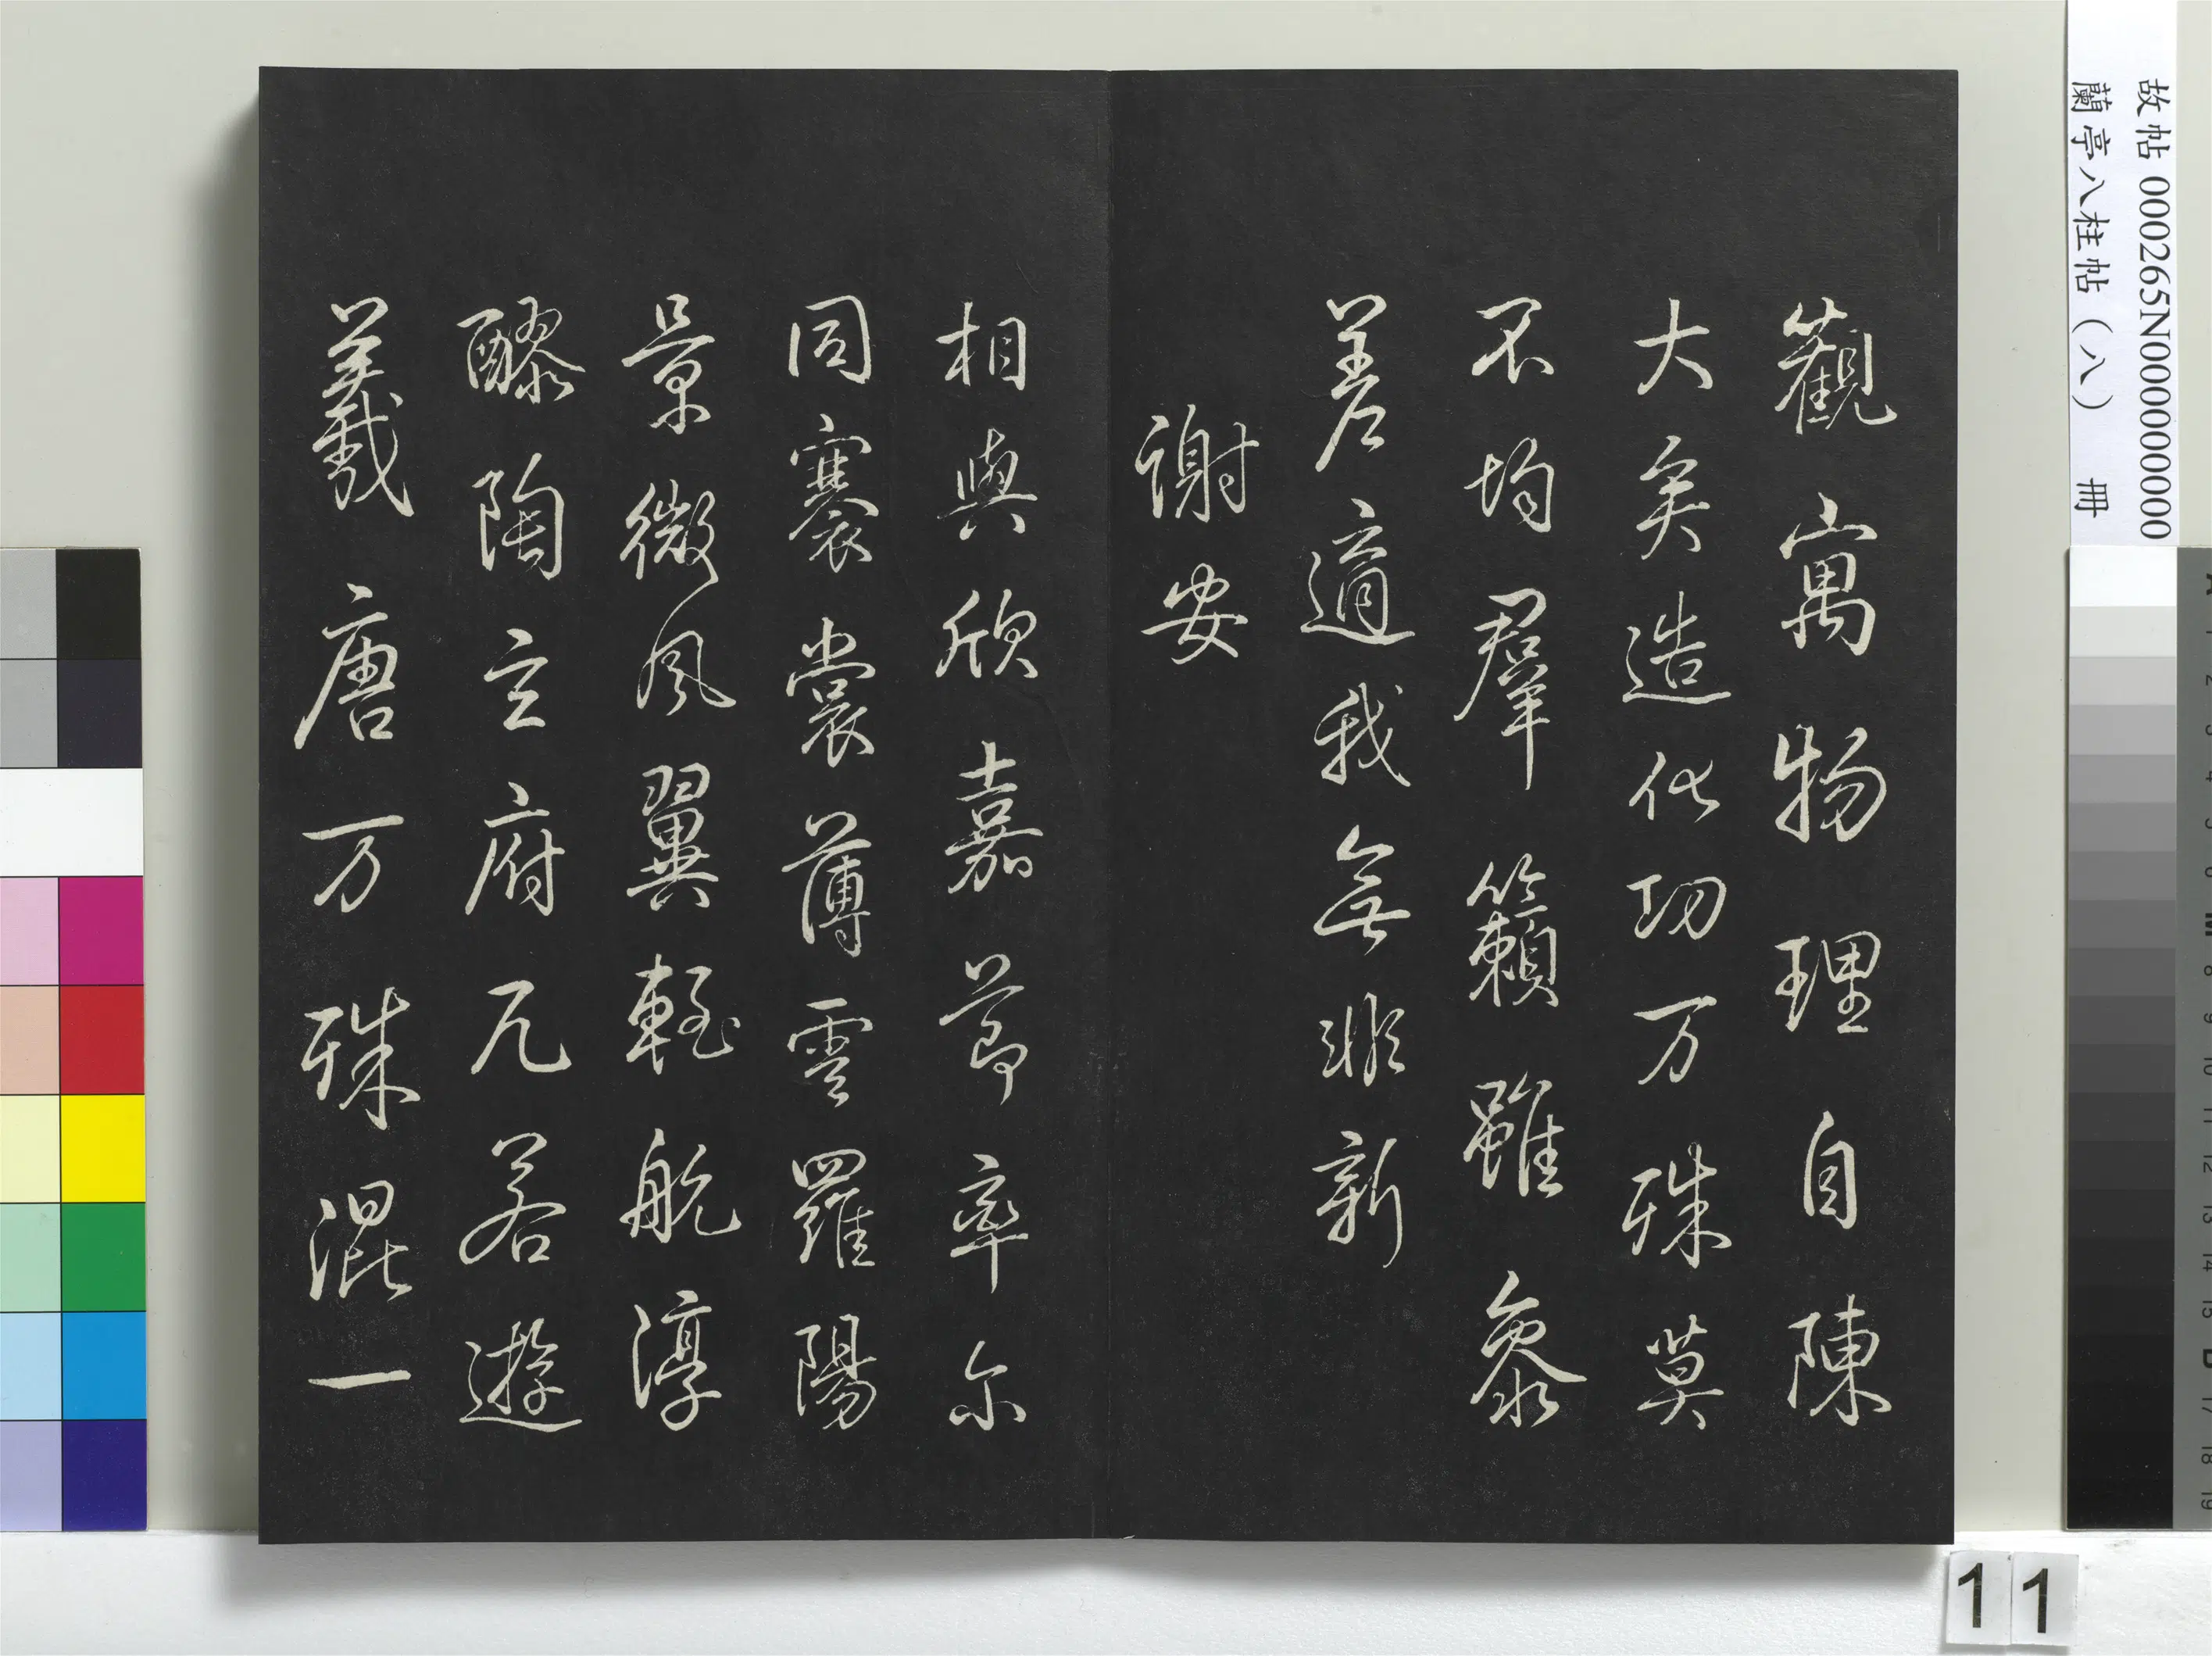 觀寓物理自陳
大矣造化功万殊莫
不均群籟雖叅
差適我無非新
謝安
相與欣嘉節率尔
同褰裳薄雲羅陽
景微風翼輕航淳
醪陶玄府兀若遊
羲唐万殊混一
故帖 000265N000000000
蘭亭八柱帖（八） 冊
11